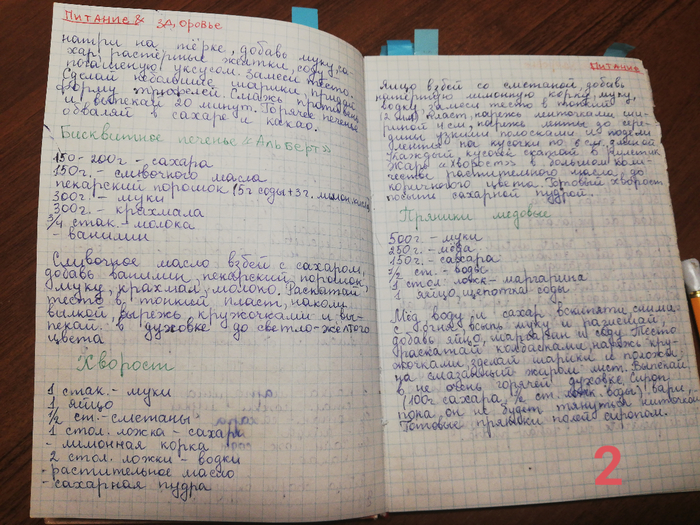 Питание & здоровье
натри на тёрке, добавь муку, са-
хар, растёртые желтки, соду,
погашеную уксусом. Замеси тесто.
Сделай небольшие шарики, придай
форму трюфелей. Смажь противень
и выпекай 20 минут. Горячее печенье
обваляй в сахаре и какао.
Бисквитное печенье «Альберт»
150-200г - сахара
150г. - сливочного масла
пекарский порошок (5г соды + 3г. лимон.кислоты)
300г - муки
300г. - крахмала
3/4 стак. - молока
ванилин
Сливочное масло взбей с сахаром,
добавь ванилин, пекарский порошок,
муку, крахмал, молоко. Раскатай
тесто в тонкий пласт, наколи
вилкой, вырежь кружочками и вы-
пекай в духовке до светло-желтого
цвета
Хворост
1 стак. - муки
1 яйцо
1/2 ст. - сметаны
1 стол. ложка - сахара
- лимонная корка
2 стол. ложки - водки
- растительное масло
- сахарная пудра
Питание
Яйцо взбей со сметаной, добавь
натертую лимонную корку, муку,
водку, замеси тесто в тонкий
(2 мм) пласт, нарежь ленточками ши-
риной 4 см, нарежь ленты до сере-
дины узкими полосками и подели
ленты на кусочки по 5 см. длиной
Каждый кусочек скатай в рулетик.
Жарь «хворост» в большом коли-
честве растительного масла до
коричневого цвета. Готовый хворост
посыпь сахарной пудрой.
Пряники медовые
500г - муки
250г. - мёда
150г. - сахара
1/2 ст. - воды
1 стол ложк - маргарина
1 яйцо, щепотка соды
Мёд, воду и сахар вскипяти, снима
с огня, всыпь муку и размешай,
добавь яйцо, маргарин и соду. Тесто
раскатай колбасками, нарежь кру-
жочками, сделай шарики и положи
на смазанный жиром лист. Выпекай
в не очень горячей духовке. Сироп
(100г сахара, 1/2 ст. воды) вари,
пока он не будет тянуться ниточкой
Готовые пряники полей сиропом.
2